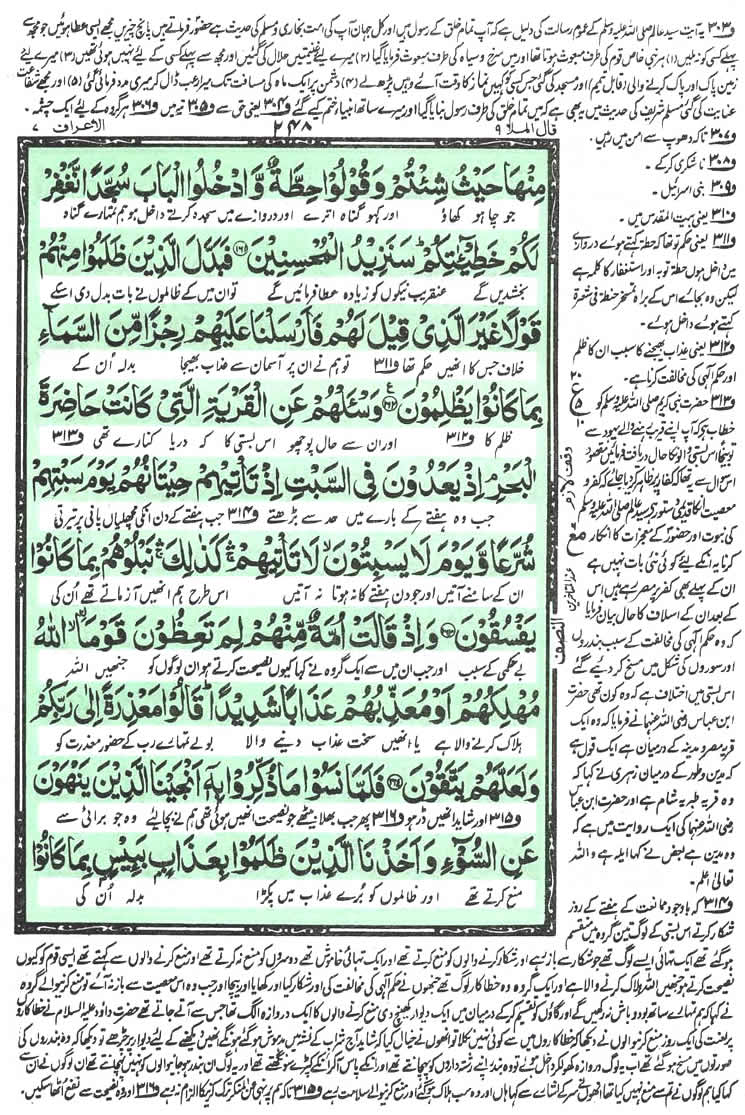 و۳۰۳ یہ آیت سید عالم صلی اللہ علیہ وسلم کے عموم رسالت کی دلیل ہے کہ آپ تمام خلق کے رسول ہیں اور کل جہان آپ کی امت بخاری و مسلم کی حدیث ہے حضور فرماتے ہیں پانچ چیزیں مجھے ایسی عطا ہوئیں جو مجھ سے
پہلے کسی کو نہ ملیں (۱) ہر نبی خاص قوم کی طرف مبعوث ہوتا تھا اور میں سرخ و سیاہ کی طرف مبعوث فرمایا گیا (۲) میرے لئے غنیمتیں حلال کی گئیں اور مجھ سے پہلے کسی کے لئے نہیں ہوئی تھیں (۳) میرے لئے
زمین پاک اور پاک کرنے والی (قابل تیمم) اور مسجد کی گئی جس کسی کو کہیں نماز کا وقت آئے وہیں پڑھ لے (۴) دشمن پر ایک ماہ کی مسافت تک میرا رعب ڈال کر میری مدد فرمائی گئی (۵) اور مجھے شفاعت
عنایت کی گئی مسلم شریف کی حدیث میں یہ بھی ہے کہ میں تمام خلق کی طرف رسول بنایا گیا اور میرے ساتھ انبیاء ختم کیے گئے و۳۰۴ یعنی حق سے و۳۰۵ تیہ میں و۳۰۶ ہر گروہ کے لئے ایک چشمہ۔
قال الملا ۹ ۲۴۸ الاعراف ۷
مِنْهَا حَيْثُ شِئْتُمْ وَقُوْلُوْا حِطَّةٌ وَّادْخُلُوا الْبَابَ سُجَّدًا نَّغْفِرْ
جو چاہو کھاؤ اور کہو گناہ اترے اور دروازے میں سجدہ کرتے داخل ہو ہم تمہارے گناہ
لَكُمْ خَطِيْٓـٰٔتِكُمْ ؕ سَنَزِيْدُ الْمُحْسِنِيْنَ ۝۱۶۱ فَبَدَّلَ الَّذِيْنَ ظَلَمُوْا مِنْهُمْ
بخشدیں گے عنقریب نیکوں کو زیادہ عطا فرمائیں گے تو ان میں کے ظالموں نے بات بدل دی اسکے
قَوْلًا غَيْرَ الَّذِيْ قِيْلَ لَهُمْ فَاَرْسَلْنَا عَلَيْهِمْ رِجْزًا مِّنَ السَّمَآءِ
خلاف جس کا انھیں حکم تھا و۳۱۱ تو ہم نے ان پر آسمان سے عذاب بھیجا بدلہ اُن کے
بِمَا كَانُوْا يَظْلِمُوْنَ ۝۱۶۲ وَسْـَٔلْهُمْ عَنِ الْقَرْيَةِ الَّتِيْ كَانَتْ حَاضِرَةَ
ظلم کا و۳۱۲ اور ان سے حال پوچھو اس بستی کا کہ دریا کنارے تھی و۳۱۳
الْبَحْرِ ۘ اِذْ يَعْدُوْنَ فِي السَّبْتِ اِذْ تَاْتِيْهِمْ حِيْتَانُهُمْ يَوْمَ سَبْتِهِمْ
جب وہ ہفتے کے بارے میں حد سے بڑھتے و۳۱۴ جب ہفتے کے دن انکی مچھلیاں پانی پر تیرتی
شُرَّعًا وَّيَوْمَ لَا يَسْبِتُوْنَ ۙ لَا تَاْتِيْهِمْ ۛۚ كَذٰلِكَ ۛۚ نَبْلُوْهُمْ بِمَا كَانُوْا
ان کے سامنے آتیں اور جو دن ہفتے کا نہ ہوتا نہ آتیں اس طرح ہم انھیں آزماتے تھے اُن کی
يَفْسُقُوْنَ ۝۱۶۳ وَاِذْ قَالَتْ اُمَّةٌ مِّنْهُمْ لِمَ تَعِظُوْنَ قَوْمًا ۙ اللّٰهُ
بے حکمی کے سبب اور جب ان میں سے ایک گروہ نے کہا کیوں نصیحت کرتے ہو ان لوگوں کو جنھیں اللہ
مُهْلِكُهُمْ اَوْ مُعَذِّبُهُمْ عَذَابًا شَدِيْدًا ؕ قَالُوْا مَعْذِرَةً اِلٰى رَبِّكُمْ
ہلاک کرنے والا ہے یا انھیں سخت عذاب دینے والا بولے تمہارے رب کے حضور معذرت کو
وَلَعَلَّهُمْ يَتَّقُوْنَ ۝۱۶۴ فَلَمَّا نَسُوْا مَا ذُكِّرُوْا بِهٖٓ اَنْجَيْنَا الَّذِيْنَ يَنْهَوْنَ
و۳۱۵ اور شاید انھیں ڈر ہو و۳۱۶ پھر جب بھلا بیٹھے جو نصیحت انھیں ہوئی تھی ہم نے بچا لیے وہ جو برائی سے
عَنِ السُّوْٓءِ وَاَخَذْنَا الَّذِيْنَ ظَلَمُوْا بِعَذَابٍۭ بَـِٕيْسٍۭ بِمَا كَانُوْا
منع کرتے تھے اور ظالموں کو بُرے عذاب میں پکڑا بدلہ اُن کی
و۳۰۷ تاکہ دھوپ سے امن میں رہیں۔
و۳۰۸ ناشکری کرکے۔
و۳۰۹ بنی اسرائیل۔
و۳۱۰ یعنی بیت المقدس میں۔
و۳۱۱ یعنی حکم تو تھا کہ حطۃ کہتے ہوئے دروازے
میں داخل ہوں حطۃ توبہ اور استغفار کا کلمہ ہے
لیکن وہ بجائے اس کے براہ تمسخر حنطۃ فی شعرۃ
کہتے ہوئے داخل ہوئے۔
و۳۱۲ یعنی عذاب بھیجنے کا سبب ان کا ظلم
اور حکم الٰہی کی مخالفت کرنا ہے۔
و۳۱۳ حضرت نبی کریم صلی اللہ علیہ وسلم کو
خطاب ہے کہ آپ اپنے قریب رہنے والے یہود سے
توبیخاً اس بستی والوں کا حال دریافت فرمائیں مقصود
اس سوال سے یہ تھا کہ کفار پر ظاہر کر دیا جائے کہ کفر و
معصیت ان کا قدیمی دستور ہے سید عالم صلی اللہ علیہ وسلم
کی نبوت اور حضور کے معجزات کا انکار
کرنا یہ ان کے لئے کوئی نئی بات نہیں ہے
ان کے پہلے بھی کفر پر مصر رہے ہیں اس
کے بعد ان کے اسلاف کا حال بیان فرمایا
کہ وہ حکم الٰہی کی مخالفت کے سبب بندروں
اور سوروں کی شکل میں مسخ کر دیے گئے
اس بستی میں اختلاف ہے کہ وہ کون تھی حضرت
ابن عباس رضی اللہ عنہما نے فرمایا کہ وہ ایک
قریہ مصر و مدینہ کے درمیان ہے ایک قول ہے
کہ مدین و طور کے درمیان زہری نے کہا
کہ وہ قریہ طبریہ شام ہے اور حضرت ابن عباس
رضی اللہ عنہما کی ایک روایت میں ہے کہ
وہ مدین ہے بعض نے کہا ایلہ ہے واللہ
تعالیٰ اعلم۔
و۳۱۴ کہ باوجود ممانعت کے ہفتے کے روز
شکار کرتے اس بستی کے لوگ تین گروہ میں منقسم
۲۰
ع
۵
۱۰
وقف لازم
مع
عند المتاخرین
النصف
ہو گئے تھے ایک تہائی ایسے لوگ تھے جو شکار سے باز رہے اور شکار کرنے والوں کو منع کرتے تھے اور ایک تہائی خاموش تھے دوسروں کو منع نہ کرتے تھے اور منع کرنے والوں سے کہتے تھے ایسی قوم کو کیوں
نصیحت کرتے ہو جنھیں اللہ ہلاک کرنے والا ہے اور ایک گروہ وہ خطا کار لوگ تھے جنھوں نے حکم الٰہی کی مخالفت کی اور شکار کیا اور کھایا اور بیچا اور جب وہ اس معصیت سے باز نہ آئے تو منع کرنیوالے گروہ
نے کہا کہ ہم تمہارے ساتھ بود و باش نہ رکھیں گے اور گاؤں کو تقسیم کر کے درمیان میں ایک دیوار کھینچ دی منع کرنے والوں کا ایک دروازہ الگ تھا جس سے آتے جاتے تھے حضرت داؤد علیہ السلام نے خطا کاروں
پر لعنت کی ایک روز منع کرنیوالوں نے دیکھا کہ خطا کاروں میں سے کوئی نہیں نکلا تو انھوں نے خیال کیا کہ شاید آج شراب کے نشہ میں مدہوش ہو گئے ہوں گے انھیں دیکھنے کے لئے دیوار پر چڑھے تو دیکھا کہ وہ بندروں کی
صورتوں میں مسخ ہو گئے تھے اب یہ لوگ دروازہ کھول کر داخل ہوئے تو وہ بندر اپنے رشتہ داروں کو پہچانتے تھے اور انکے پاس آکر انکے کپڑے سونگھتے تھے اور یہ لوگ ان بندر ہو جانیوالوں کو نہیں پہچانتے تھے ان لوگوں نے ان سے
کہا کیا ہم لوگوں نے تم سے منع نہیں کیا تھا انھوں نے سر کے اشارے سے کہا ہاں اور وہ سب ہلاک ہو گئے اور منع کرنیوالے سلامت رہے و۳۱۵ تاکہ ہم پر نہی عن المنکر ترک کرنیکا الزام نہ رہے و۳۱۶ اور وہ نصیحت سے نفع اٹھا سکیں۔